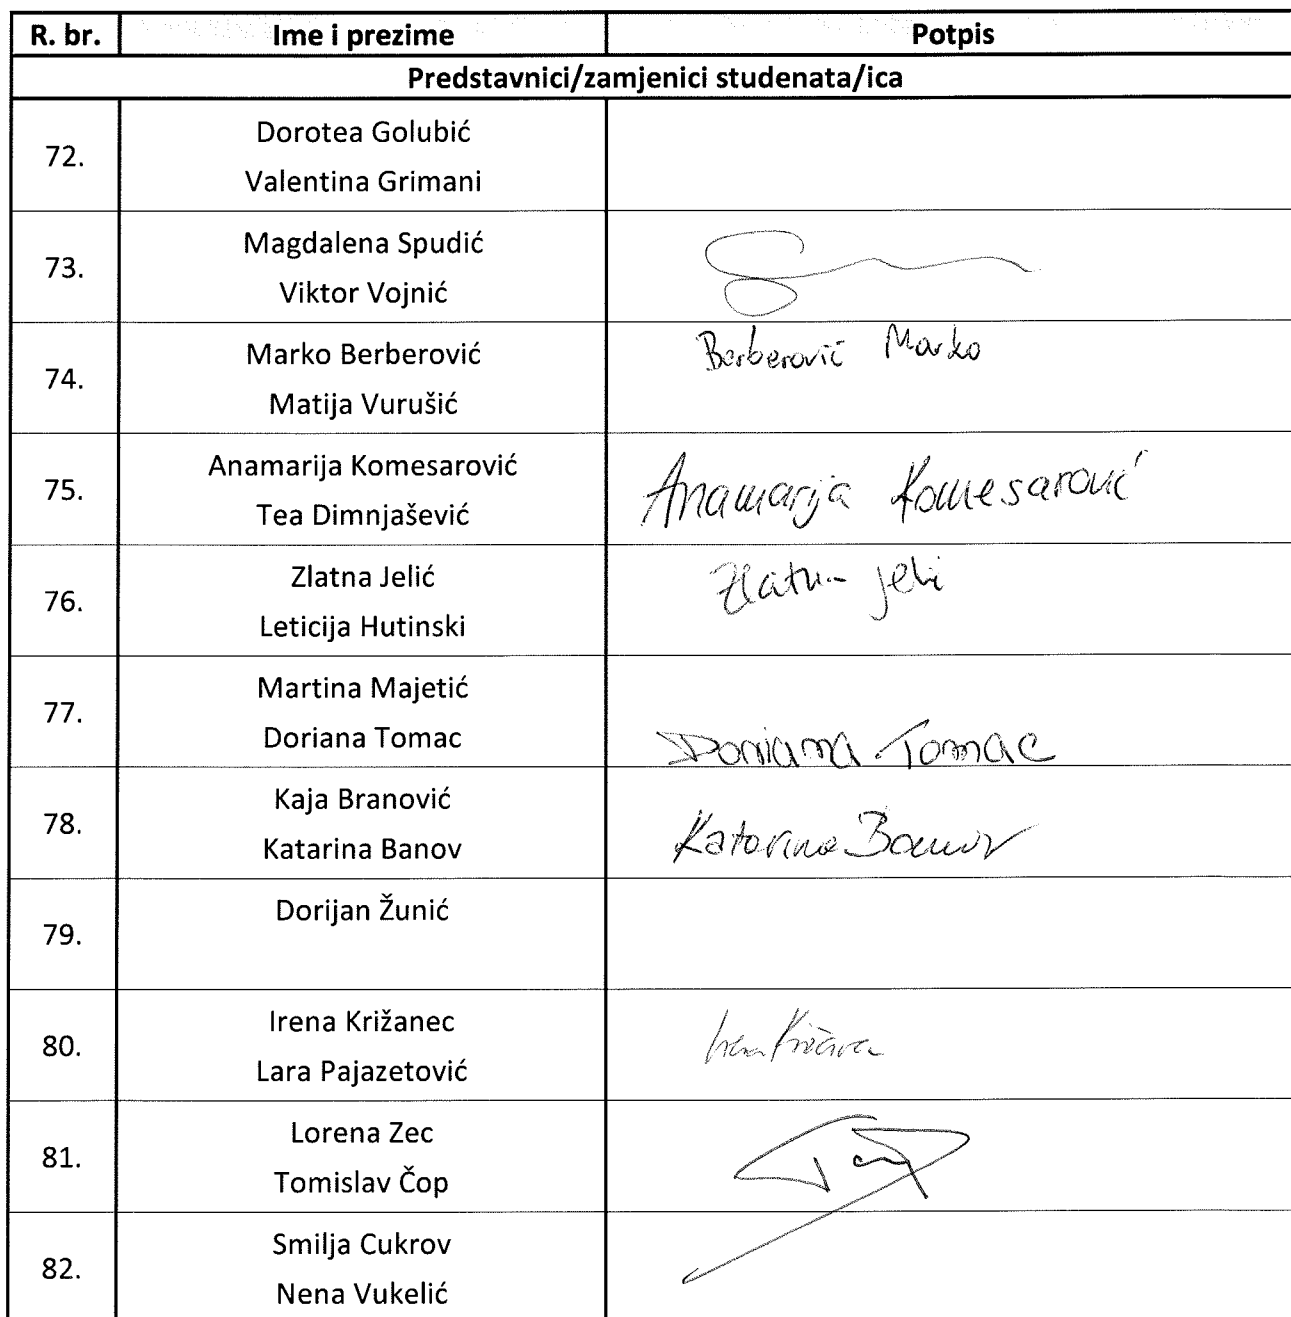 R. br. Ime i prezime Potpis
Predstavnici/zamjenici studenata/ica
72. Dorotea Golubić
Valentina Grimani
73. Magdalena Spudić
Viktor Vojnić
74. Marko Berberović Berberović Marko
Matija Vurušić
75. Anamarija Komesarović Anamarija Komesarović
Tea Dimnjašević
76. Zlatna Jelić Zlatna Jelić
Leticija Hutinski
77. Martina Majetić
Doriana Tomac Doriana Tomac
78. Kaja Branović
Katarina Banov Katarina Banov
79. Dorijan Žunić
80. Irena Križanec Irena Križanec
Lara Pajazetović
81. Lorena Zec
Tomislav Čop
82. Smilja Cukrov
Nena Vukelić